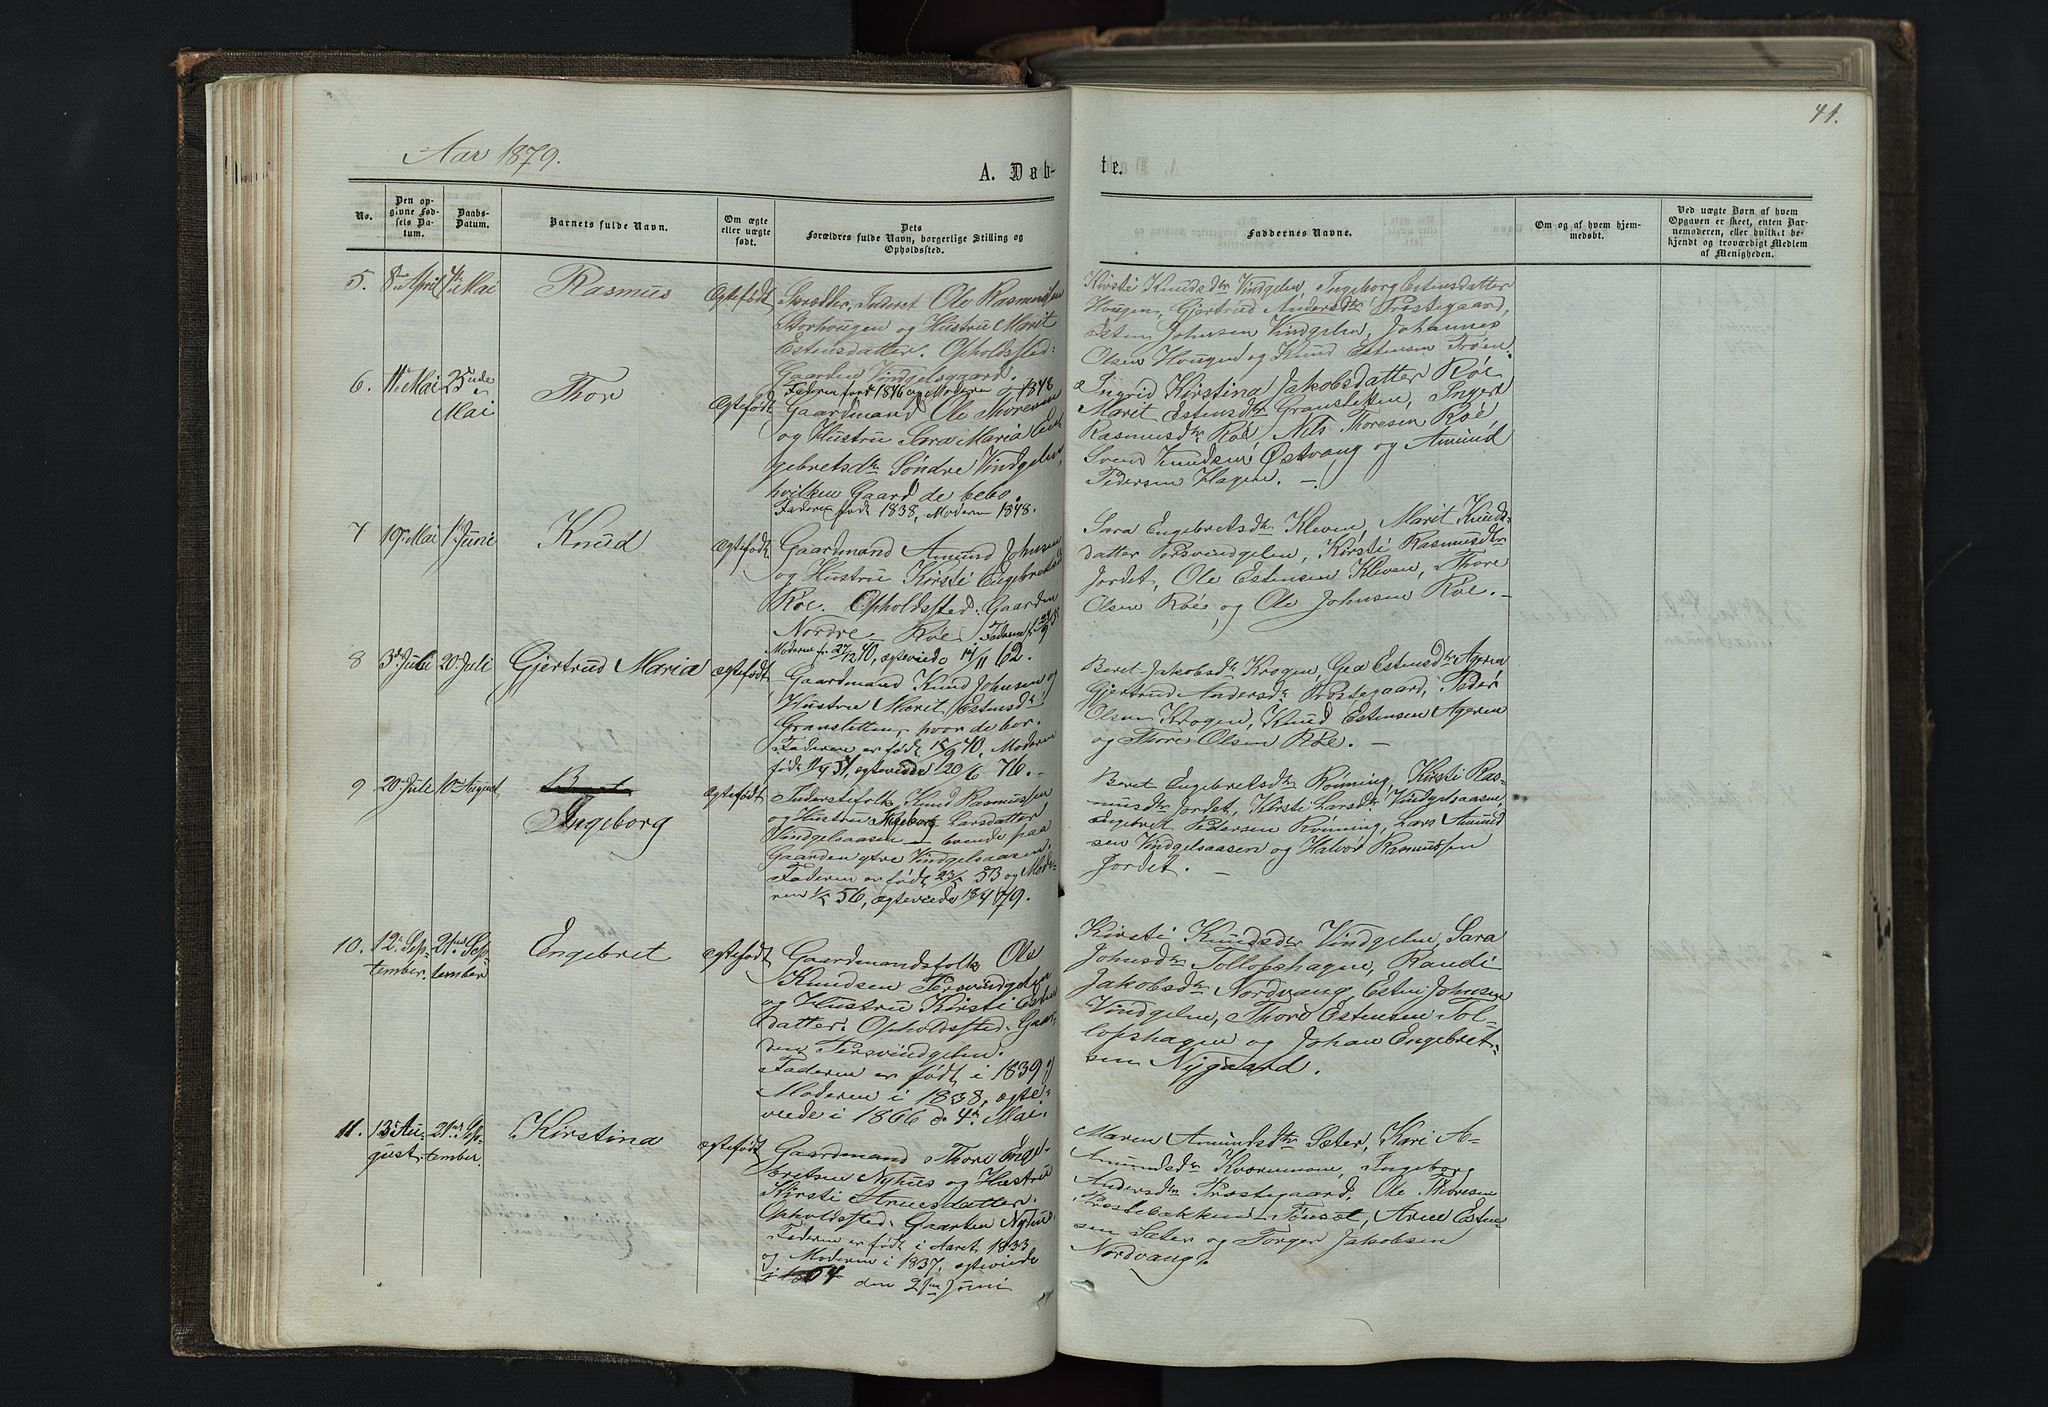 41.
Aar 1879.
A. Døbte.
No.
Den opgivne Fødsels Datum.
Daabs-Datum.
Barnets fulde Navn.
Om ægte eller uægte født.
Dets Forældres fulde Navn, borgerlige Stilling og Opholdssted.
Faddernes Navne.
Om og af hvem hjemmedøbt.
Ved uægte Børn af hvem Opgaven er skeet, enten Barnemoderen, eller hvilket bekjendt og troværdigt Medlem af Menigheden.
5. 8de April 4de Mai Rasmus Ægtefødt
Skrædder, Inderst Ole Rasmussen
Storhougen og Hustru Marit
Estensdatter. Opholdssted:
Gaarden Vindgelsgaard.
Faderen født 1846 og Moderen 1848
Kirsti Knudsdtr Vindgelen, Ingeborg Estensdatter
Hougen, Gjertrud Andersdtr Præstegaard,
Esten Johnsen Vindgelen, Johannes
Olsen Hougen og Knud Estensen Trøen.
6. 11te Mai 25nde Mai Thor Ægtefødt
Gaardmand Ole Thoresen
og Hustru Sara Maria En-
gebretsdtr Søndre Vindgelen,
hvilken Gaard de bebo.
Faderen født 1838, Moderen 1848.
Ingrid Kirstina Jakobsdatter Røe
Marit Estensdtr Granstetten, Inger
Rasmusdtr Røe, Nils Thoresen Røe
Svend Knudsen Østvang og Amund
Pedersen Hagen. —
7 19de Mai 1ste Juni Knud Ægtefødt
Gaardmand Amund Johnsen
og Hustru Kirsti Engebretsdtr
Røe. Opholdssted: Gaarden
Nordre Røe. Faderen f.
Moderen f. 27/12 40, ægteviede 14/11 62.
Sara Engebretsdtr Kleven, Marit Knuds-
datter Persvindgelen, Kirsti Rasmusdtr
Jordet, Ole Estensen Kleven, Thore
Olsen Røe og Ole Johnsen Røe. —
8 3de Juli 20de Juli Gjertrud Maria Ægtefødt
Gaardmand Knud Johnsen og
Hustru Marit Estensdtr
Granstetten, hvor de bor.
Faderen er født 15/9 40, Moderen
født 11/4 51, ægteviede 20/6 76. —
Beret Jakobsdtr Krogen, Gea Estensdtr Ageren
Gjertrud Andersdtr Præstegaard, Peder
Olsen Krogen, Knud Estensen Ageren
og Thore Olsen Røe. —
9 20de Juli 10de August Ingeborg Ægtefødt
Inderstefolk Knud Rasmussen
og Hustru Ingeborg Larsdatter
Vindgelsaasen — boende paa
Gaarden ytre Vindgelsaasen,
Faderen er født 53 og Mode-
ren 56, ægteviede 79.
Beret Engebretsdtr Rønning, Kirsti Ras-
musdtr Jordet, Kirsti Larsdtr Vindgelsaasen,
Engebret Pedersen Rønning, Lars Amund
sen Vindgelsaasen og Halvor Rasmussen
Jordet. —
10. 12te September. 21nde September Engebret Ægtefødt
Gaardmandsfolk Ole
Knudsen Persvindgelen
og Hustru Kirsti Estens
datter. Opholdssted: Gaar-
den Persvindgelen.
Faderen er født i 1839 og
Moderen i 1838, ægte-
viede i 1866 d. 4de Mai.
Kirsti Knudsdtr Vindgelen, Sara
Johnsdtr Tollofshagen, Randi
Jakobsdtr Nordvang, Esten Johnsen
Vindgelen, Thore Estensen Tol-
lofshagen og Johan Engebret-
sen Nygaard.
11. 13de August. 21nde September. Kirstina Ægtefødt
Gaardmand Thore Enge-
bretsen Nyhus og Hustru
Kirsti Arnesdatter.
Opholdssted: Gaarden Nyhus.
Faderen er født i Aaret 1833
og Moderen i 1837, ægteviede
i 1864 den 21nde Juni
Maren Amundsdtr Sæter, Kari A-
mundsdtr Kværnmoen, Ingeborg
Andersdtr Præstegaard, Ole Thoresen
Præstebakken Tønset, Arne Esten
sen Sæter og Torger Jakobsen
Nordvang.